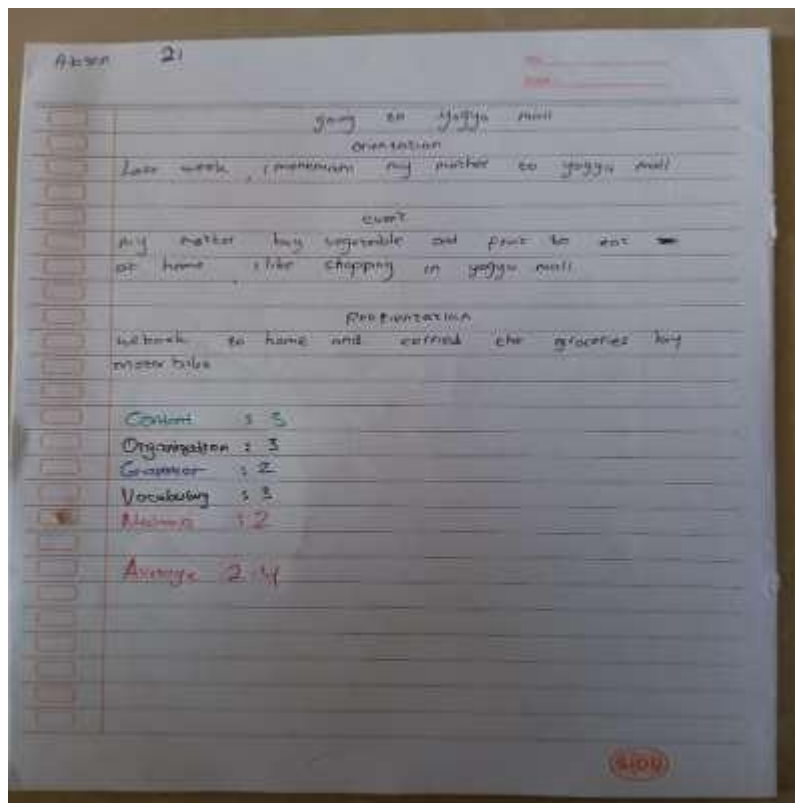 Absen 21
going to yogya mall
orientation
Last week, i menemani my mother to yogya mall
event
my mother buy vegetable and fruit to eat
at home, i like shopping in yogya mall
Reorientation
to home and carried the groceries by
motor bike
Content : 3
Organization : 3
Grammar : 2
Vocabulary : 3
: 2
Average 2.4
SIDU